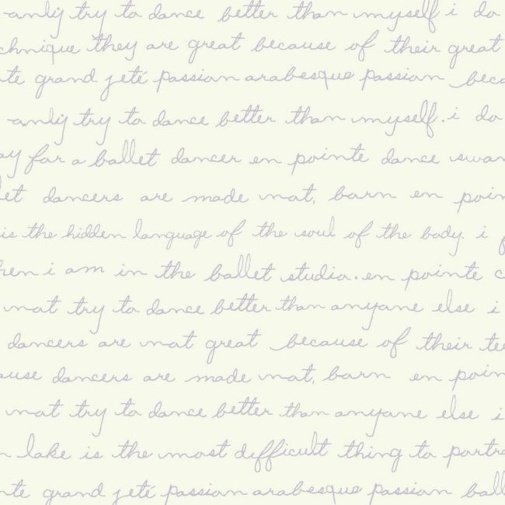 only try to dance better than myself i do
chnique they are great because of their great
te grand jeté passion arabesque passion beco
only try to dance better than myself. i do
ay for a ballet dancer en pointe dance swan
let dancers are made not, born en poin
is the hidden language of the soul of the body i
hen i am in the ballet studio. en pointe c
not try to dance better than anyone else i
dancers are not great because of their te
ause dancers are made not, born en poin
not try to dance better than anyone else i
n lake is the most difficult thing to portra
te grand jeté passion arabesque passion ball